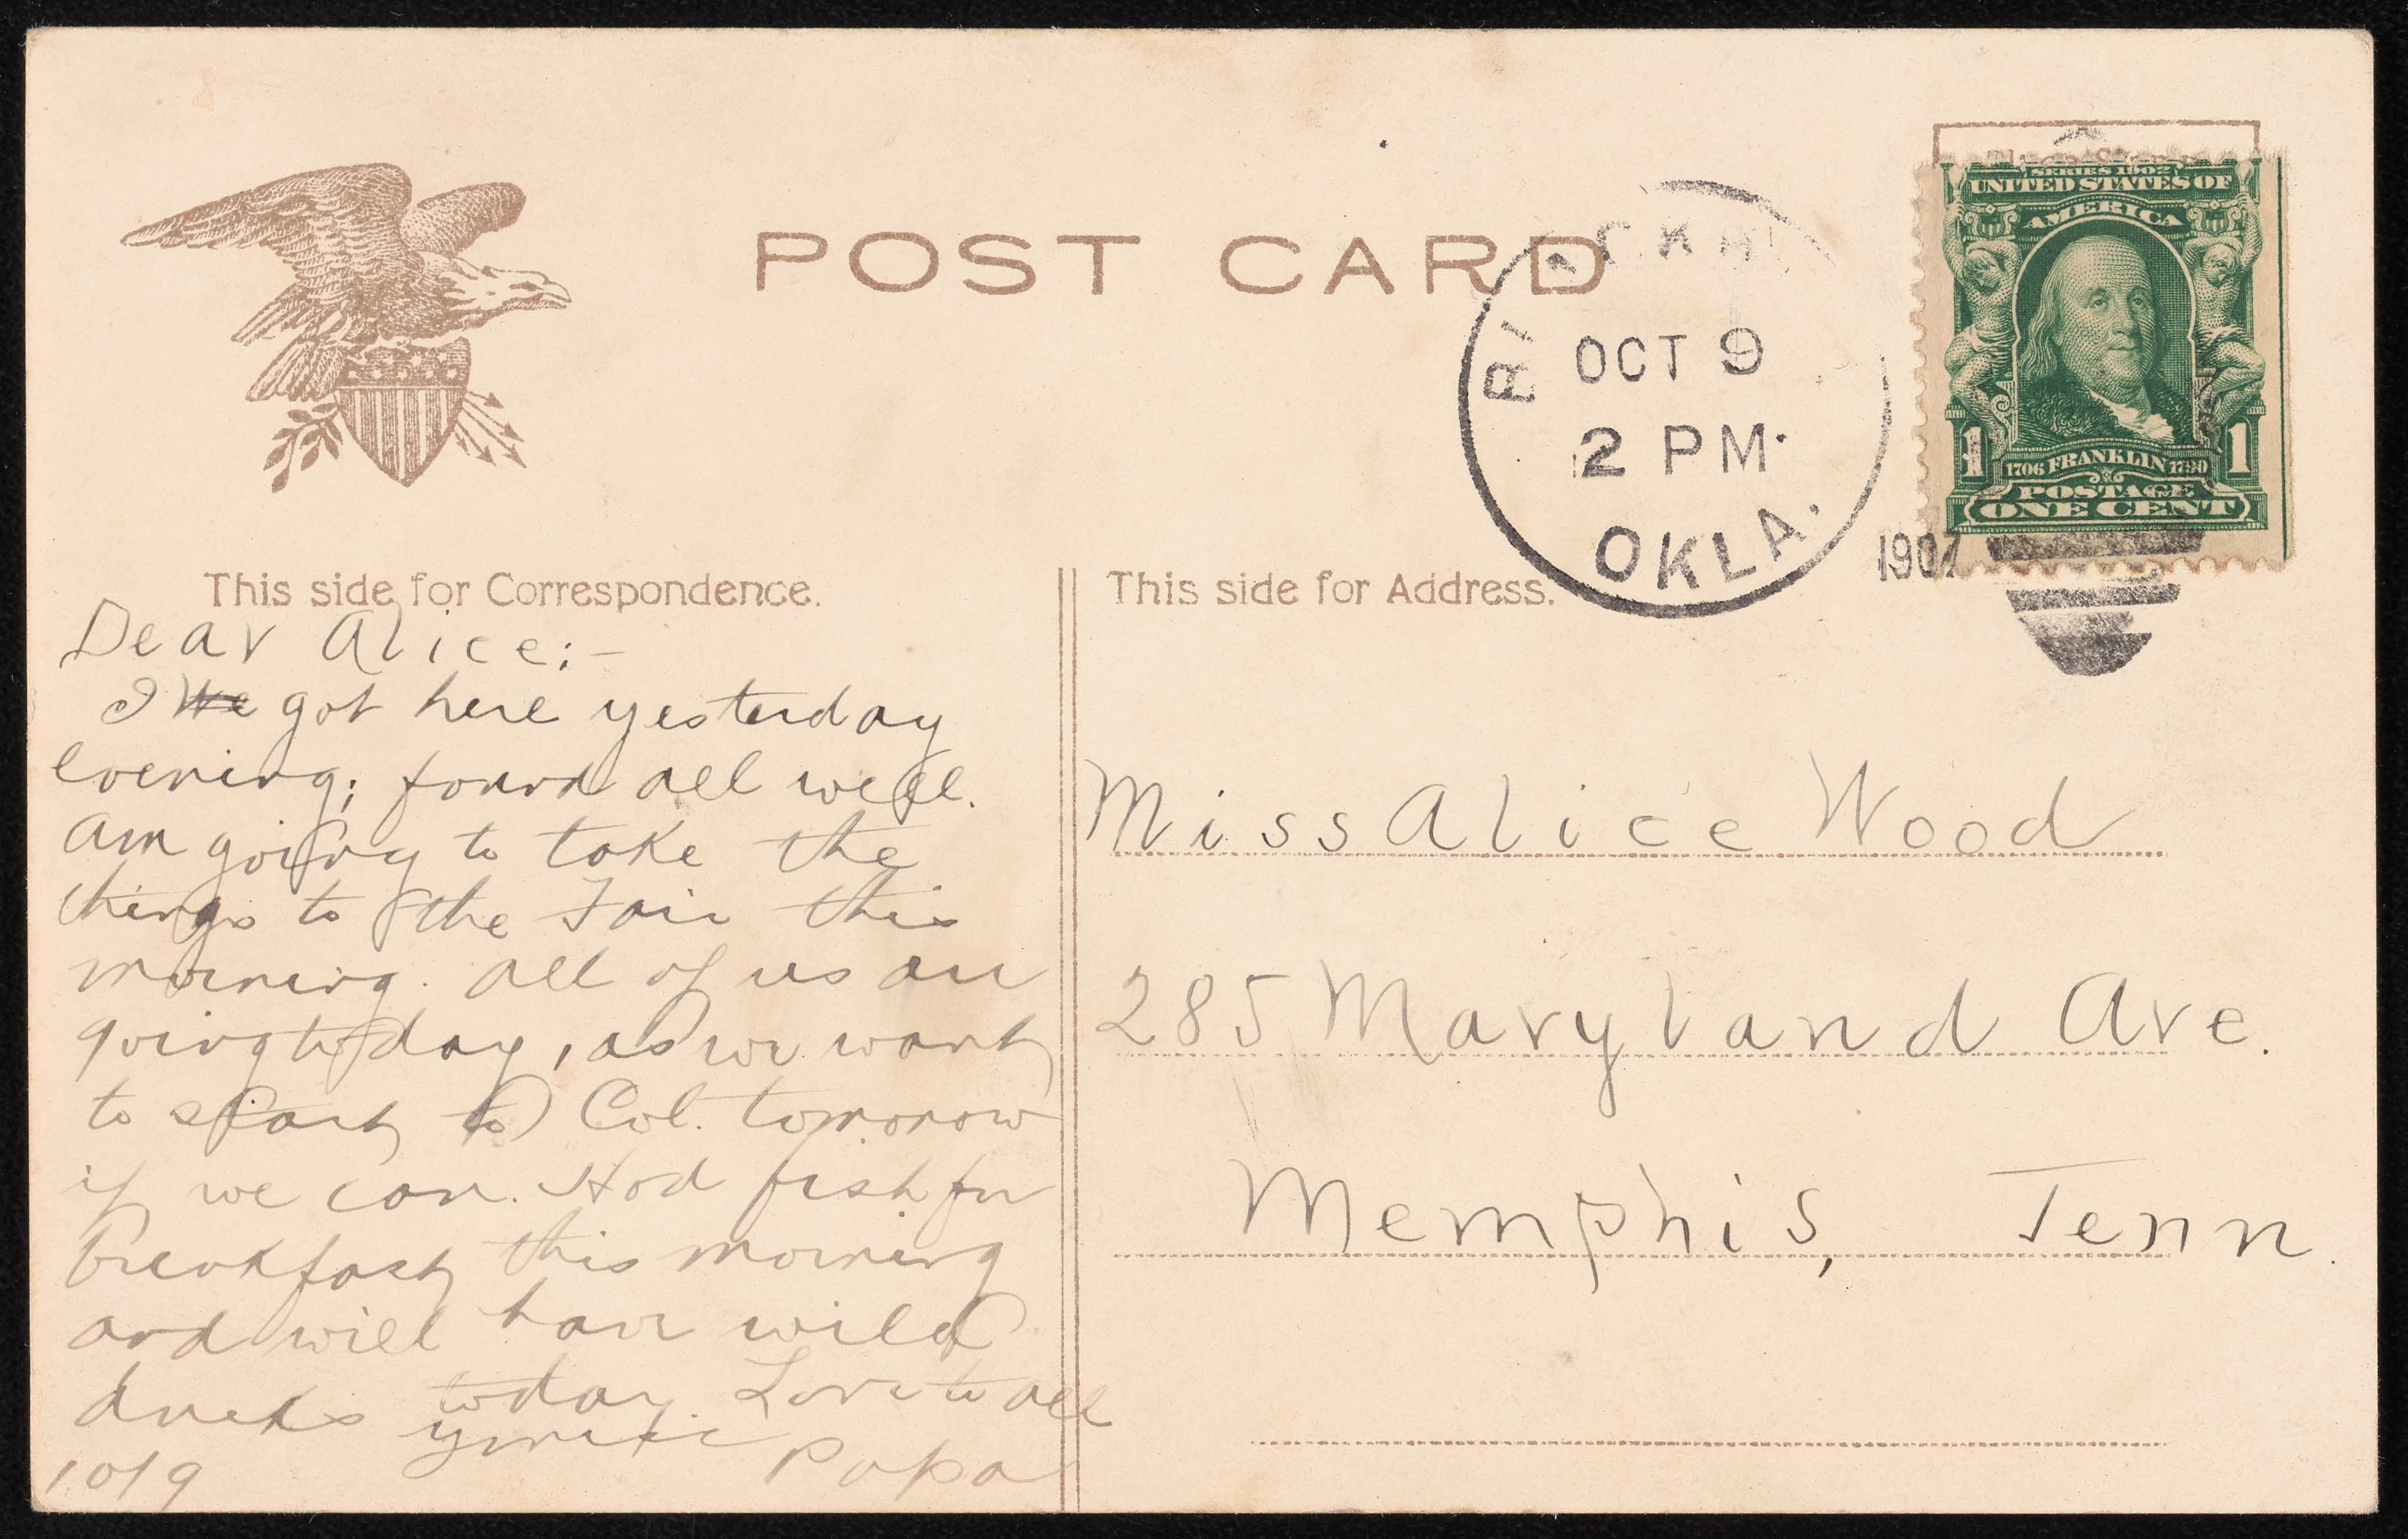 POST CARD
OCT 9
2 PM.
OKLA.
1907
SERIES 1902
UNITED STATES OF
AMERICA
1 1
1706 FRANKLIN 1790
POSTAGE
ONE CENT
This side for Correspondence.
Dear Alice:-
I got here yesterday
evening; found all well.
Am going to take the
things to the Fair this
morning. All of us are
going today, as we want
to start to Col. tomorrow
if we can. Had fish for
breakfast this morning
and will have wild
ducks today. Love to all
Papa
10/9
This side for Address.
Miss Alice Wood
285 Maryland Ave.
Memphis, Tenn.